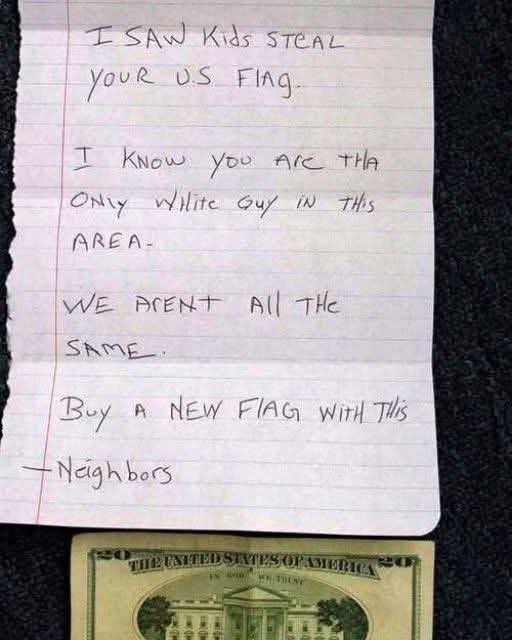 I SAW Kids STEAL
YOUR U.S FlAg.
I KNOW you Are THA
ONly WHite Guy iN THis
AREA-
WE ArENt All THe
SAME.
Buy A NEW FlAG WitH THis
- Neighbors
20 THE UNITED STATES OF AMERICA 20
IN GOD WE TRUST